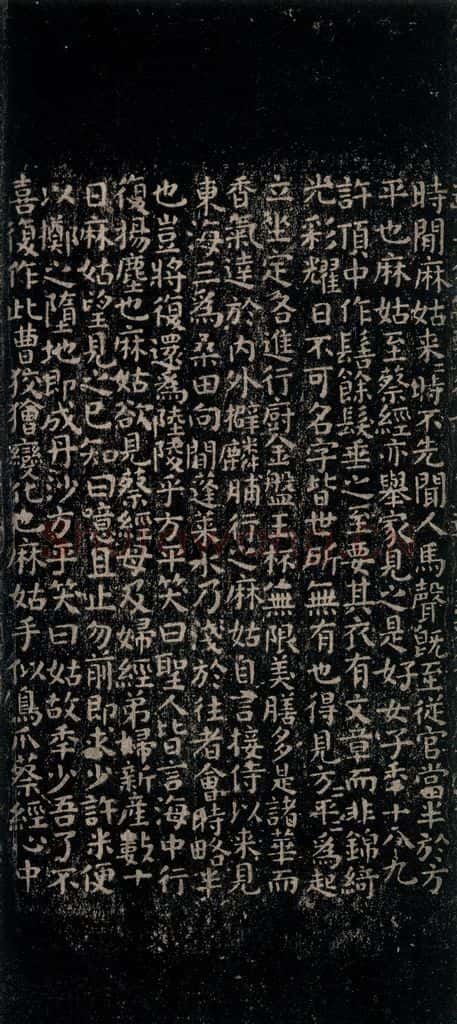 時聞麻姑来〻時不先聞人馬聲既至従官當半於方
平也麻姑至蔡經亦舉家見之是好女子年十八九
許頂中作髻餘髮垂之至要其衣有文章而非錦綺
光彩耀日不可名字皆世所無有也得見方平〻為起
立坐定各進行廚金盤玉杯無限美膳多是諸華而
香氣達於内外擗麟脯行之麻姑自言接侍以来見
東海三為桑田向聞蓬来水乃淺於往者會時略半
也豈將復還為陸陵乎方平笑曰聖人皆言海中行
復揚塵也麻姑欲見蔡經母及婦經弟婦新產數十
日麻姑望見之已知曰噫且止勿前即求少許米便
以擲之墮地即成丹沙方平笑曰姑故年少吾了不
喜復作此曹狡獪變化也麻姑手似鳥爪蔡經心中